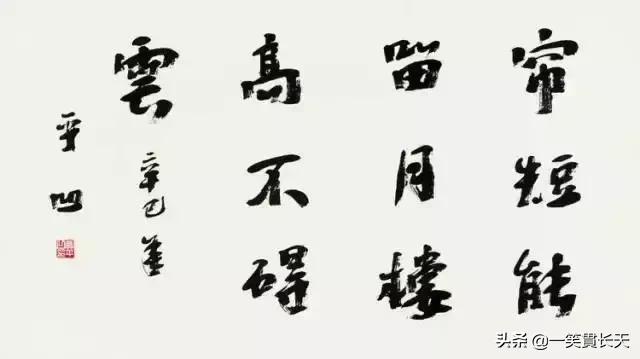 帘短能
留月樓
高不碍
雲
辛巳
平凹
头条 @一笑貫长天